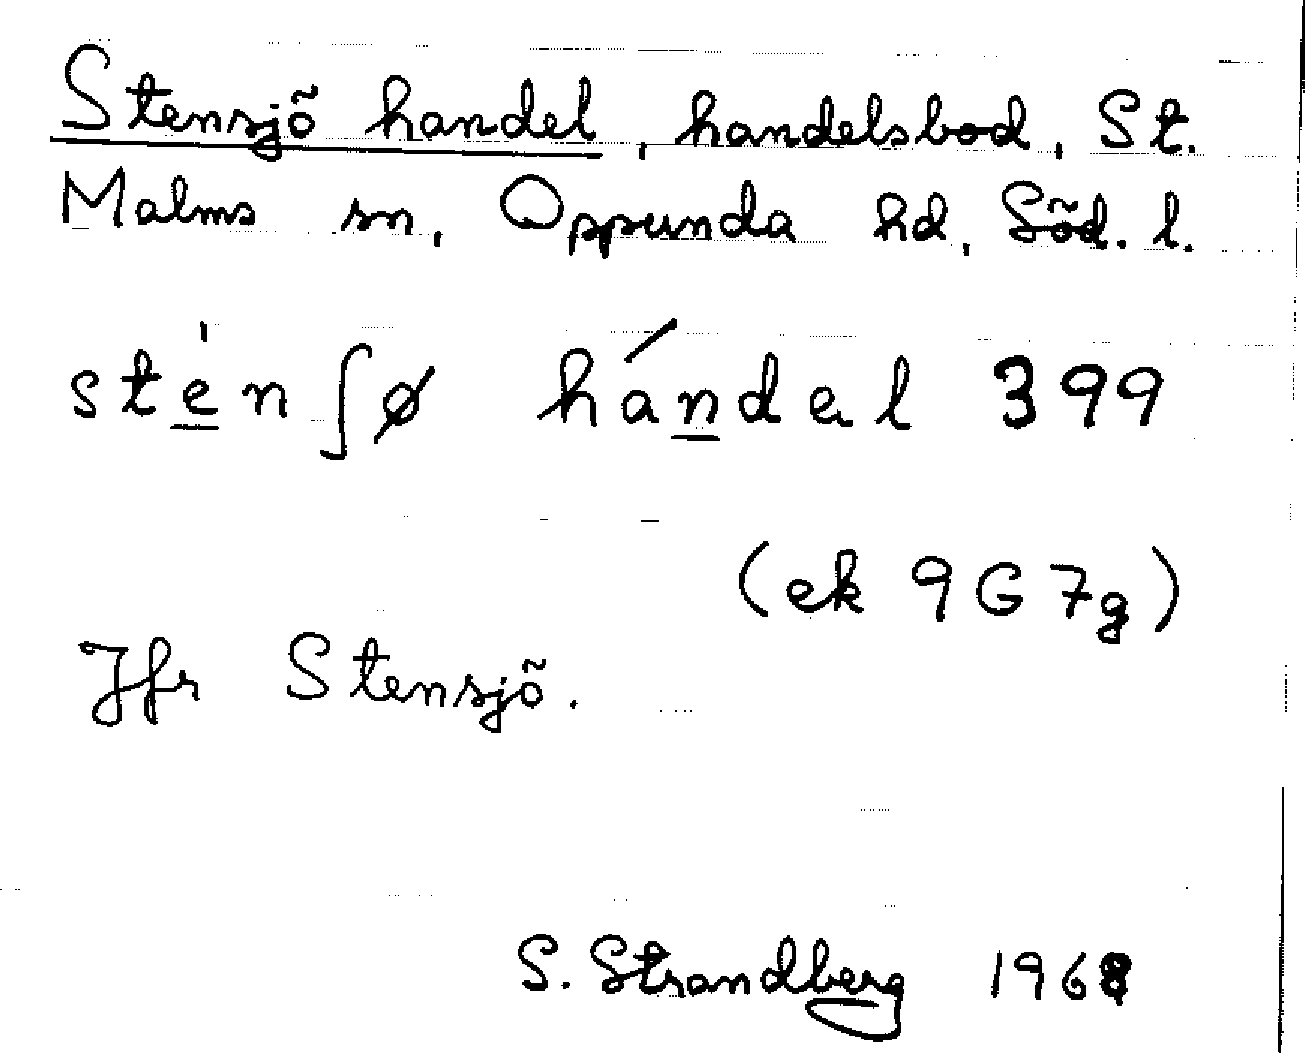 Stensjö handel, handelsbod, St.
Malms sn, Oppunda hd, Söd. l.
ste̱̍nʃø hán̲dəl 399
(ek 9G7g)
Jfr Stensjö.
S. Strandberg 1968